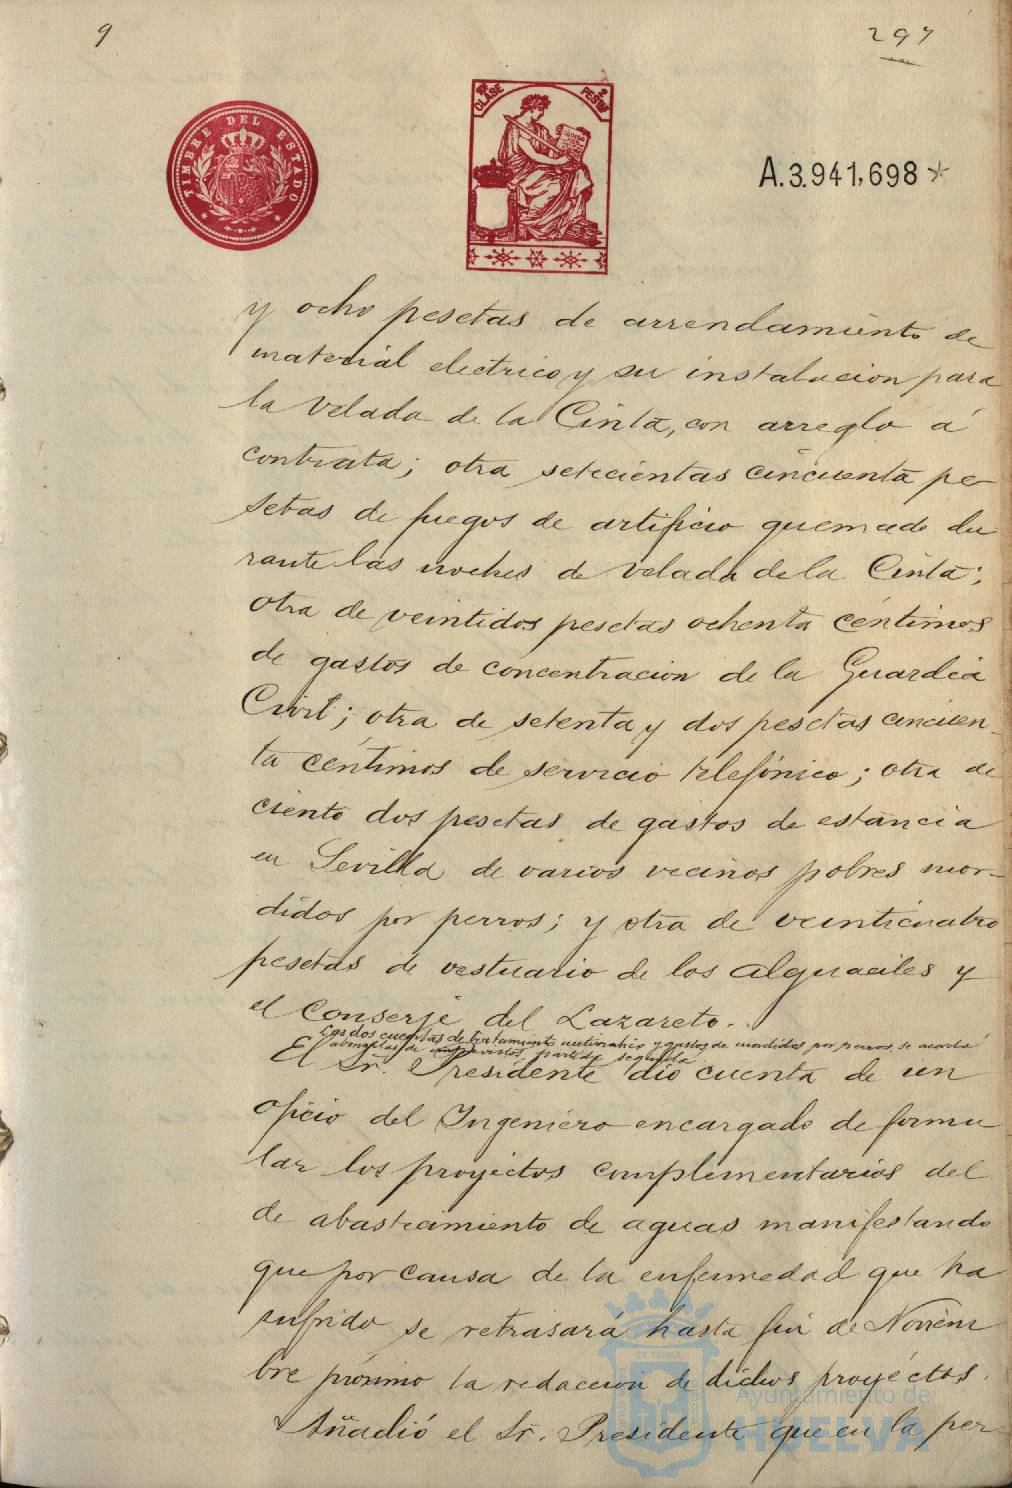 9
297
TIMBRE DEL ESTADO
CLASE
2 PESTAS
A.3.941,698*
y ocho pesetas de arrendamiento de
material electrico y su instalacion para
la Velada de la Cinta, con arreglo á
contrata; otra setecientas cincuenta pe-
setas de fuegos de artificio quemado du
rante las noches de Velada de la Cinta;
otra de veintidos pesetas ochenta céntimos
de gastos de concentracion de la Guardia
Civil; otra de setenta y dos pesetas cincuen-
ta céntimos de servicio telefónico; otra de
ciento dos pesetas de gastos de estancia
en Sevilla de varios vecinos pobres mor-
didos por perros; y otra de veinticuatro
pesetas de vestuario de los Alguaciles y
el Conserje del Lazareto.
Las dos cuentas de tratamiento antirrabico y gastos de mordidos por perros se acordó
abonarlas de imprevistos, partida segunda.
El Sr. Presidente dió cuenta de un
oficio del Ingeniero encargado de formu
lar los proyectos complementarios del
de abastecimiento de aguas manifestando
que por causa de la enfermedad que ha
sufrido se retrasará hasta fin de Noviem
bre próximo la redaccion de dichos proyectos.
Añadió el Sr. Presidente que en la per-
ET TERRA
Ayuntamiento de
HUELVA